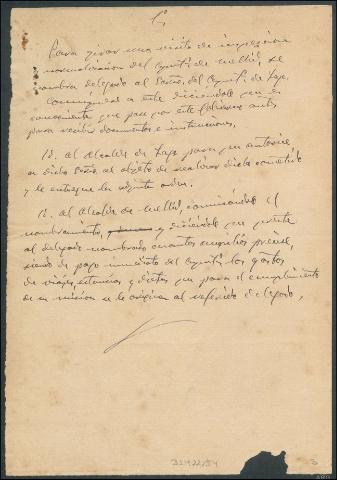 Para girar una visita de inspección
normalización del Ayunt. de Mellid, se
nombra delegado al Srio. del Ayunt. de
Comuníquese a este diciéndole que es
conveniente que pase por este Gobierno antes
para recibir documentos e instrucciones.
Id. al alcalde de para que autorice
a dicho Srio al objeto de realizar dicho cometido
y le entregue la adjunta orden.
Id. al Alcalde de Mellid, comunicándole el
nombramiento, y diciéndole que preste
al delegado nombrado cuantos auxilios precise,
siendo de pago inmediato del Ayunt. los gastos
de viaje, estancias y dietas que para el cumplimiento
de su mision se le originen al referido delegado.
32422/54
3